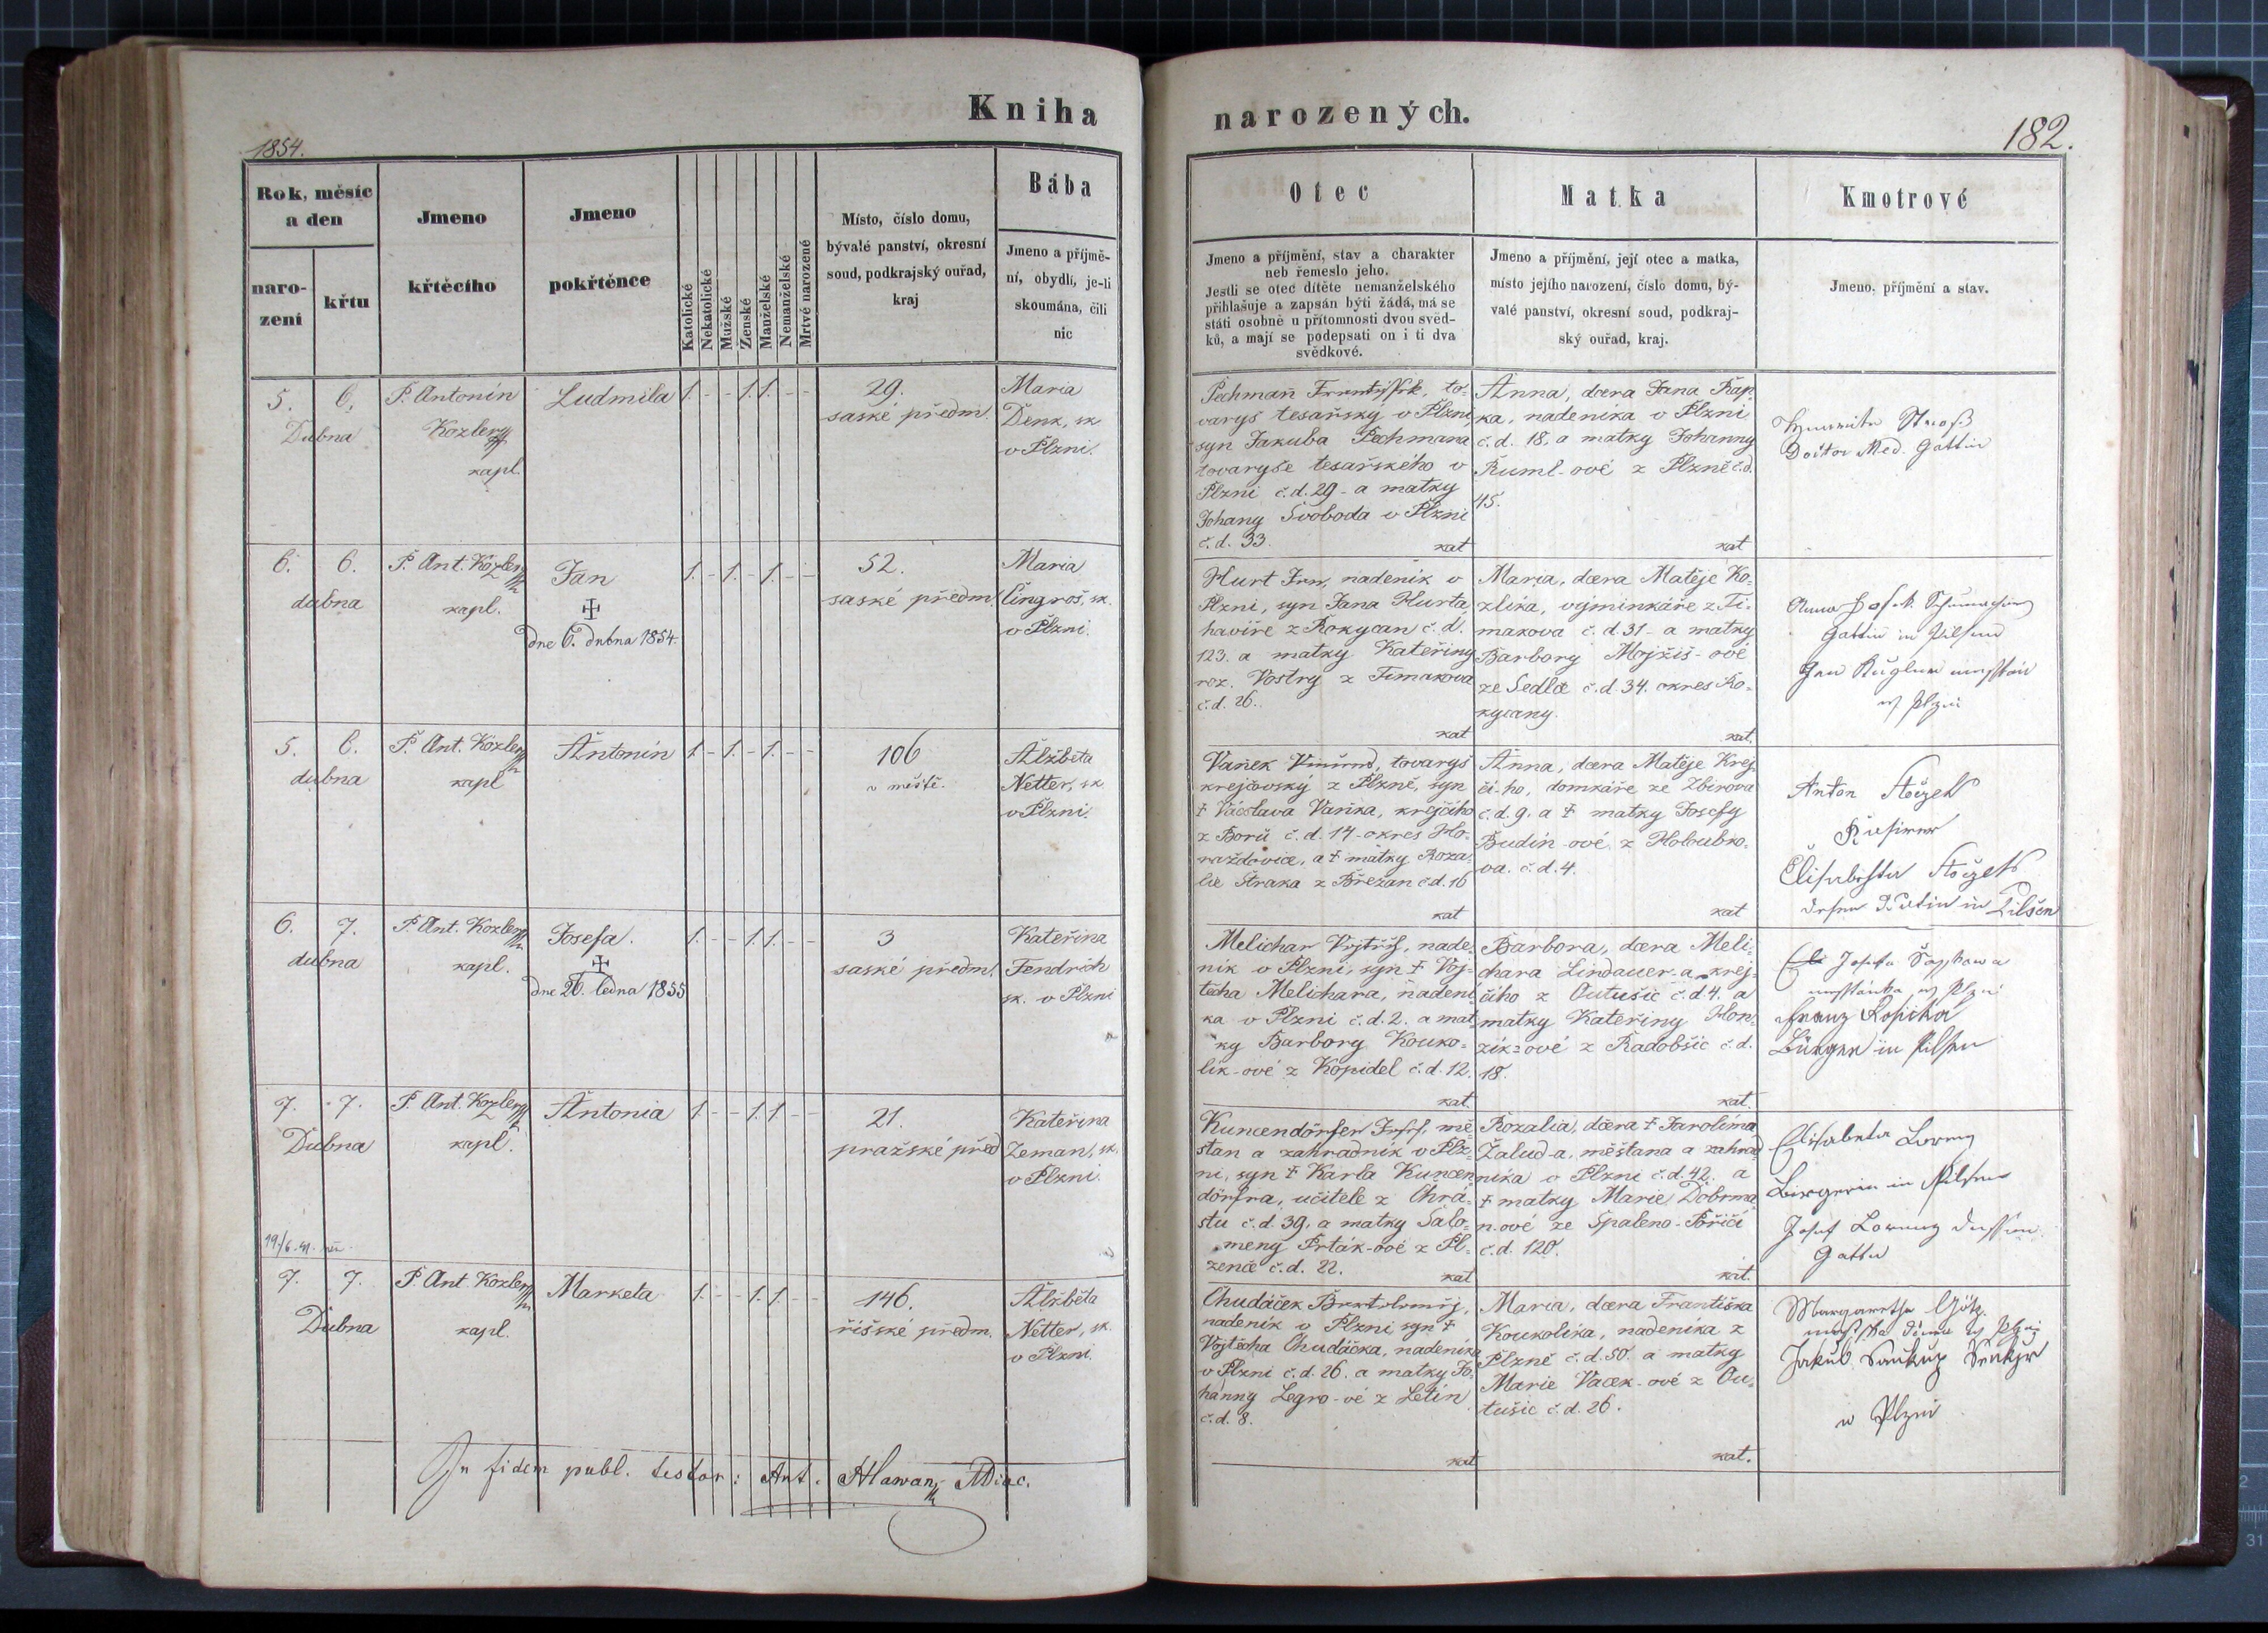 Kniha
narozených.
1854.
182.
Rok, měsíc
a den
naro-
zení
křtu
Jmeno
křtěcího
Jmeno
pokřtěnce
Katolické
Nekatolické
Mužské
Ženské
Manželské
Nemanželské
Mrtvé narozené
Místo, číslo domu,
bývalé panství, okresní
soud, podkrajský ouřad,
kraj
Bába
Jmeno a příjmě-
ní, obydlí, je-li
skoumána, čili
nic
Otec
Jmeno a příjmění, stav a charakter
neb řemeslo jeho.
Jestli se otec dítěte nemanželského
přihlašuje a zapsán býti žádá, má se
státi osobně u přítomnosti dvou svěd-
ků, a mají se podepsati on i ti dva
svědkové.
Matka
Jmeno a příjmění, její otec a matka,
místo jejího narození, číslo domu, bý-
valé panství, okresní soud, podkraj-
ský ouřad, kraj.
Kmotrové
Jmeno, příjmění a stav.
5. 6.
Dubna
P. Antonín
Kozler
kapl.
Ludmila
1. - - 1. 1. - -
29.
saské předm.
Maria
Denk, sk
v Plzni.
Pechmann František, to-
varyš tesařský v Plzni,
syn Jakuba Pechmana
tovaryše tesařského v
Plzni č.d. 29 - a matky
Johany Svoboda v Plzni
č.d. 33.
kat
Anna, dcera Jana Řap-
ka, nadeníka v Plzni
č.d. 18. a matky Johanny
Ruml-ové z Plzně č.d.
45.
kat
Doctor Med. Gattin
6. 6.
dubna
P. Ant. Kozler
kapl.
Jan
dne 6. dubna 1854.
1. - 1. - 1. - -
52.
saské předm.
Maria
Čingroš, sk.
v Plzni.
Hurt Jan, nadeník v
Plzni, syn Jana Hurta,
havíře z Rokycan č.d.
123. a matky Kateřiny
roz. Vostrý z Timakova
č.d. 26.
kat
Maria, dcera Matěje Ko-
zlíka, vejminkáře z Ti-
makova č.d. 31 - a matky
Barbory Mojžiš-ové
ze Sedlce č.d. 34. okres Ro-
kycany.
kat.
Gattin in Pilsen
5. 6.
dubna
P. Ant. Kozler
kapl
Antonín
1. - 1. - 1. - -
106
v městě.
Alžběta
Netter, sk
v Plzni.
Vaněk, tovaryš
krejčovský z Plzně, syn
† Václava Vaňka, krejčího
z Borů č.d. 14 - okres Ho-
ražďovice, a † matky Roza-
lie Straka z Břežan č.d. 16
kat
Anna, dcera Matěje Krej-
čí-ho, domkáře ze Zbirova
č.d. 9. a † matky Josefy
Budín-ové z Holoubko-
va. č.d. 4.
kat
Anton
in Pilsen
6. 7.
dubna
P. Ant. Kozler
kapl.
Josefa.
dne 26. ledna 1855
1. - - 1. 1. - -
3
saské předm.
Kateřina
Fendrich
sk. v Plzni
Melichar Vojtěch, nade-
ník v Plzni, syn † Voj-
těcha Melichara, nadení-
ka v Plzni č.d. 2. a mat-
ky Barbory Kouko-
lík-ové z Kopidel č.d. 12.
kat.
Barbora, dcera Meli-
chara Lindauer-a, krej-
čího z Outušic č.d. 4. a
matky Kateřiny Hon-
zík-ové z Radobšic č.d.
18.
kat.
Franz
Bürger in Pilsen
7. 7.
Dubna
P. Ant. Kozler
kapl.
Antonia
1. - - 1. 1 - -
21.
pražské před
Kateřina
Zeman, sk.
v Plzni.
Kuncendörfer Josef, mě-
šťan a zahradník v Plz-
ni, syn † Karla Kuncen-
dörfra, učitele z Chrá-
stu č.d. 39, a matky Salo-
meny Prták-ové z Pl-
zence č.d. 22.
kat
Rozalia, dcera † Jarolíma
Žalud-a, měšťana a zahrad-
níka v Plzni č.d. 42. a
† matky Marie Dobrma-
n-ové ze Spaleno-Poříčí
č.d. 120.
kat.
Bürgerin in Pilsen
Josef
Gatte
7. 7.
Dubna
P. Ant. Kozler
kapl.
Marketa
1. - - 1. 1. - -
146.
říšské předm.
Alžběta
Netter, sk.
v Plzni.
Chudáček Bartoloměj,
nadeník v Plzni, syn †
Vojtěcha Chudáčka, nadeníka
v Plzni č.d. 26. a matky Jo-
hanny Legro-vé z Letin
č.d. 8.
kat
Maria, dcera Františka
Koukolíka, nadeníka z
Plzně č.d. 50. a matky
Marie Vacek-ové z Ou-
tušic č.d. 26.
kat.
Margaretha Götz
Jakub Saukup
w Plzni
In fidem publ. testor: Ant. Hlawan